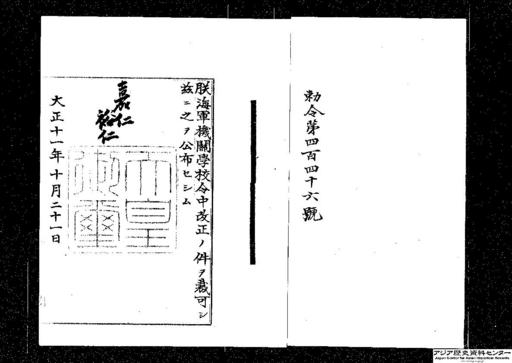 勅令第四百四十六號
朕海軍機關學校令中改正ノ件ヲ裁可シ
玆ニ之ヲ公布セシム
嘉仁
裕仁
天皇
御璽
大正十一年十月二十一日
アジア歴史資料センター
Japan Center for Asian Historical Records